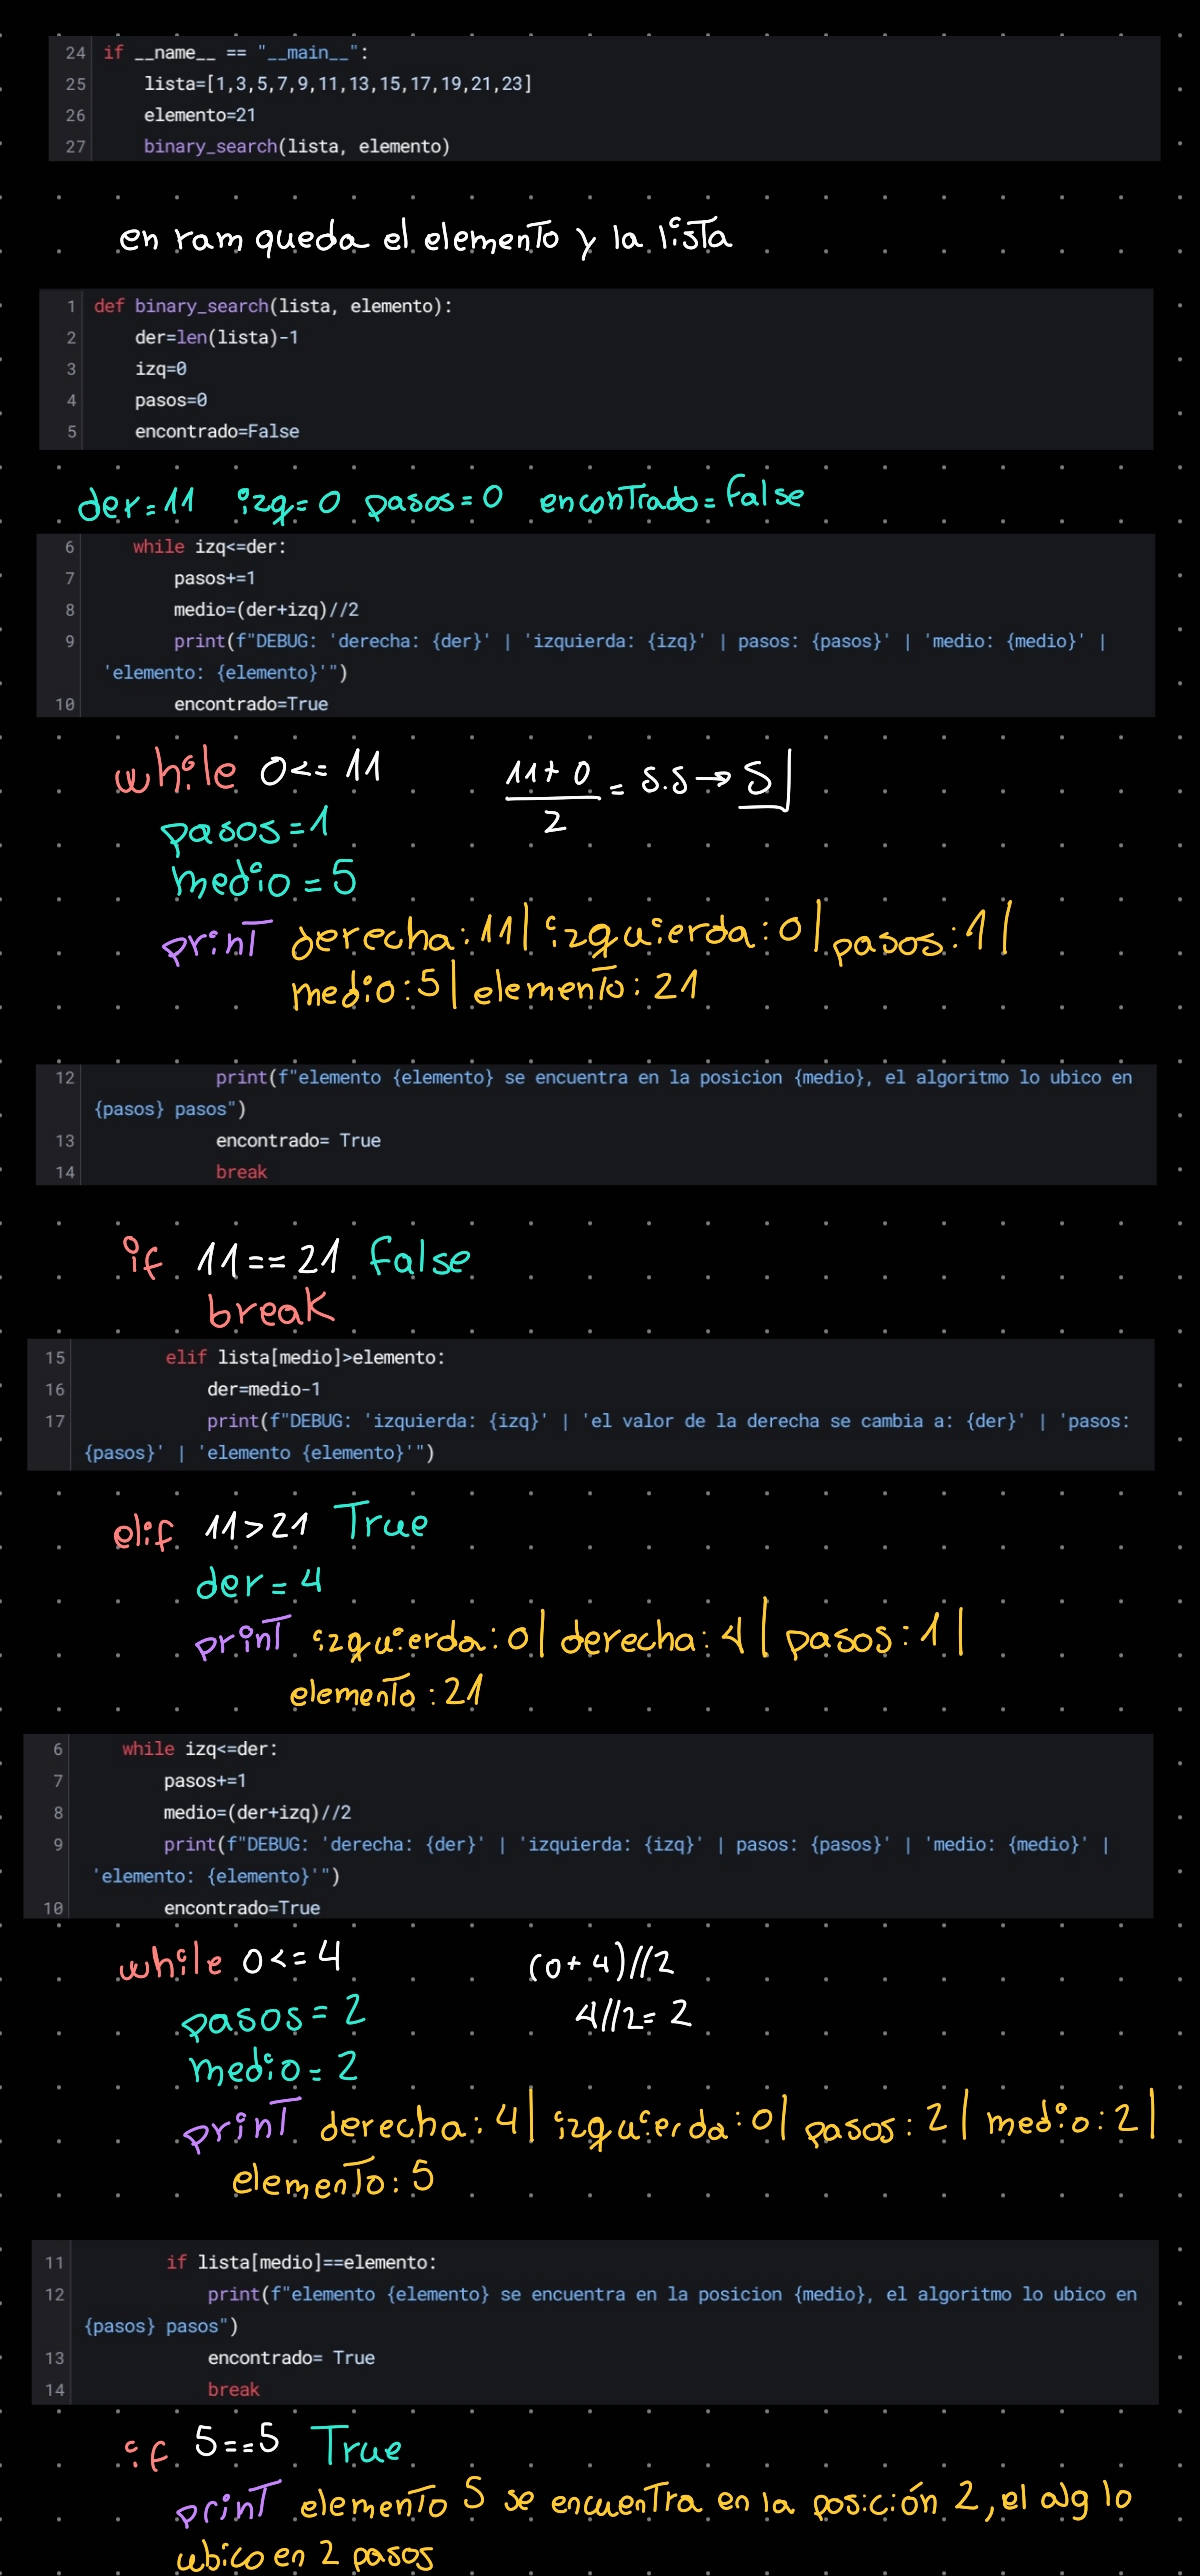 24 if __name__ == "__main__":
25 lista=[1,3,5,7,9,11,13,15,17,19,21,23]
26 elemento=21
27 binary_search(lista, elemento)
en ram queda el elemento y la lista
1 def binary_search(lista, elemento):
2 der=len(lista)-1
3 izq=0
4 pasos=0
5 encontrado=False
der=11 izq=0 pasos=0 encontrado=false
6 while izq<=der:
7 pasos+=1
8 medio=(der+izq)//2
9 print(f"DEBUG: 'derecha: {der}' | 'izquierda: {izq}' | pasos: {pasos}' | 'medio: {medio}' |
'elemento: {elemento}'")
10 encontrado=True
while 0<=11
11+0
2
= 5.5→5
pasos=1
medio=5
print derecha:11| izquierda:0| pasos:1|
medio:5| elemento:21
12 print(f"elemento {elemento} se encuentra en la posicion {medio}, el algoritmo lo ubico en
{pasos} pasos")
13 encontrado= True
14 break
if 11==21 false
break
15 elif lista[medio]>elemento:
16 der=medio-1
17 print(f"DEBUG: 'izquierda: {izq}' | 'el valor de la derecha se cambia a: {der}' | 'pasos:
{pasos}' | 'elemento {elemento}'")
elif 11>21 True
der=4
print izquierda:0| derecha:4| pasos:1|
elemento:21
6 while izq<=der:
7 pasos+=1
8 medio=(der+izq)//2
9 print(f"DEBUG: 'derecha: {der}' | 'izquierda: {izq}' | pasos: {pasos}' | 'medio: {medio}' |
'elemento: {elemento}'")
10 encontrado=True
while 0<=4 (0+4)//2
pasos=2 4//2=2
medio=2
print derecha:4| izquierda:0| pasos:2| medio:2|
elemento:5
11 if lista[medio]==elemento:
12 print(f"elemento {elemento} se encuentra en la posicion {medio}, el algoritmo lo ubico en
{pasos} pasos")
13 encontrado= True
14 break
if 5==5 True
print elemento 5 se encuentra en la posición 2, el alg lo
ubico en 2 pasos